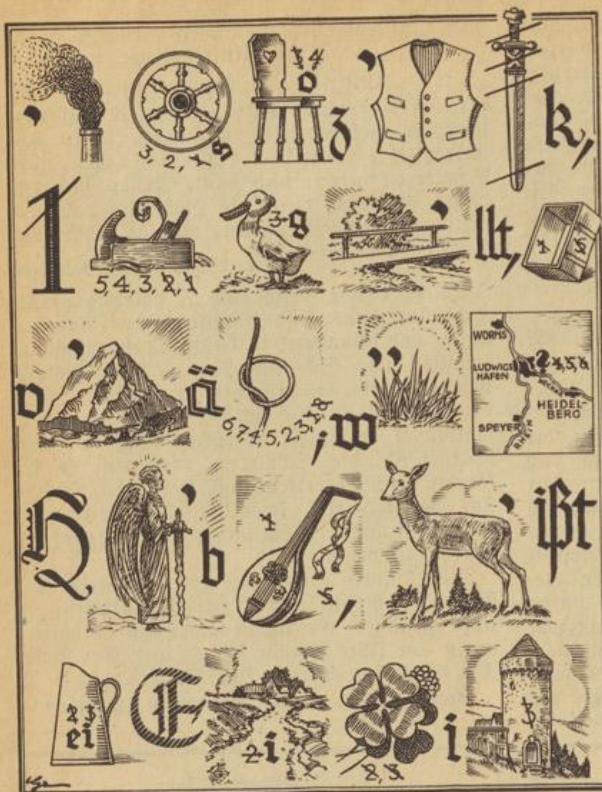 ’ 3, 2, 1 s 3 4 o z ’ k,
1 5, 4, 3, 2, 1 3 g ’ llt, 1 5
v ’ ä 6, 7, 4, 5, 2, 3, 1, 8 ; w ’’
WORMS
LUDWIGS
HAFEN
4, 5, 6
HEIDEL-
BERG
SPEYER
RHEIN
H ’ b 1 5 , ’ ißt
2 3 ei E 2 i 2, 3 i